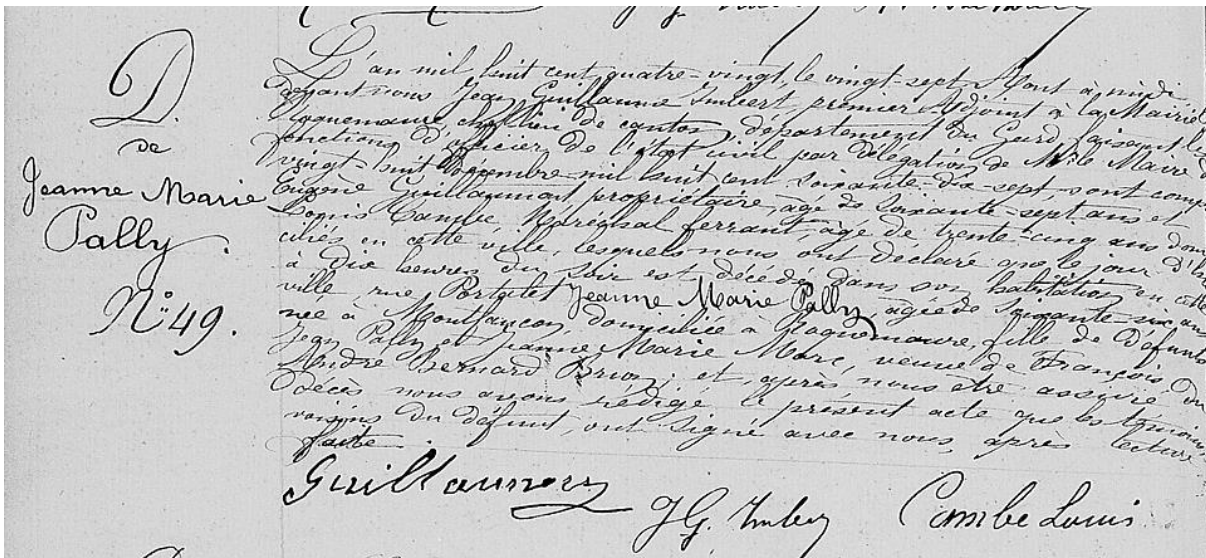 D.
de
Jeanne Marie
Pally.
N° 49.
L'an mil huit cent quatre-vingt, le vingt-sept Aout à midi
devant nous Jean Guillaume Imbert, premier Adjoint à la Mairie
Roquemaure chef lieu de canton, département du Gard faisant les
fonctions d'officier de l'état civil par délégation de Mr le Maire d
vingt-huit Décembre mil huit cent soixante-dix-sept, sont comp
Eugène Guillaumont propriétaire, agé de soixante-sept ans et
Louis Cambe, Maréchal ferrant, agé de trente-cinq ans dom
ciliés en cette ville, lesquels nous ont déclaré que le jour d'hi
à dix heures du soir est décédée dans son habitation en cette
ville rue Portalet Jeanne Marie Pally, agée de soixante-six ans
née à Montfaucon, domiciliée à Roquemaure, fille de défunts
Jean Pally et Jeanne Marie Marc, veuve de François
André Bernard Brion; et, après nous être assuré du
décès nous avons rédigé le présent acte que les témoins,
voisins du défunt, ont signé avec nous, après lecture
faite.
Guillaumon
J G. Imbert
Cambe Louis